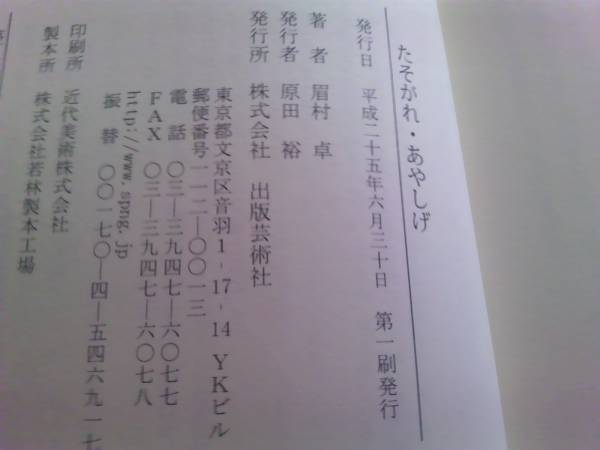 たそがれ・あやしげ
発行日 平成二十五年六月三十日 第一刷発行
著者 眉村 卓
発行者 原田 裕
発行所 株式会社 出版芸術社
東京都文京区音羽1-17-14 YKビル
郵便番号一一二―〇〇一三
電話 〇三―三九四七―六〇七七
FAX 〇三―三九四七―六〇七八
http://www.spng.jp
振替 〇〇一七〇―四―五四六九一七
印刷所 近代美術株式会社
製本所 株式会社若林製本工場